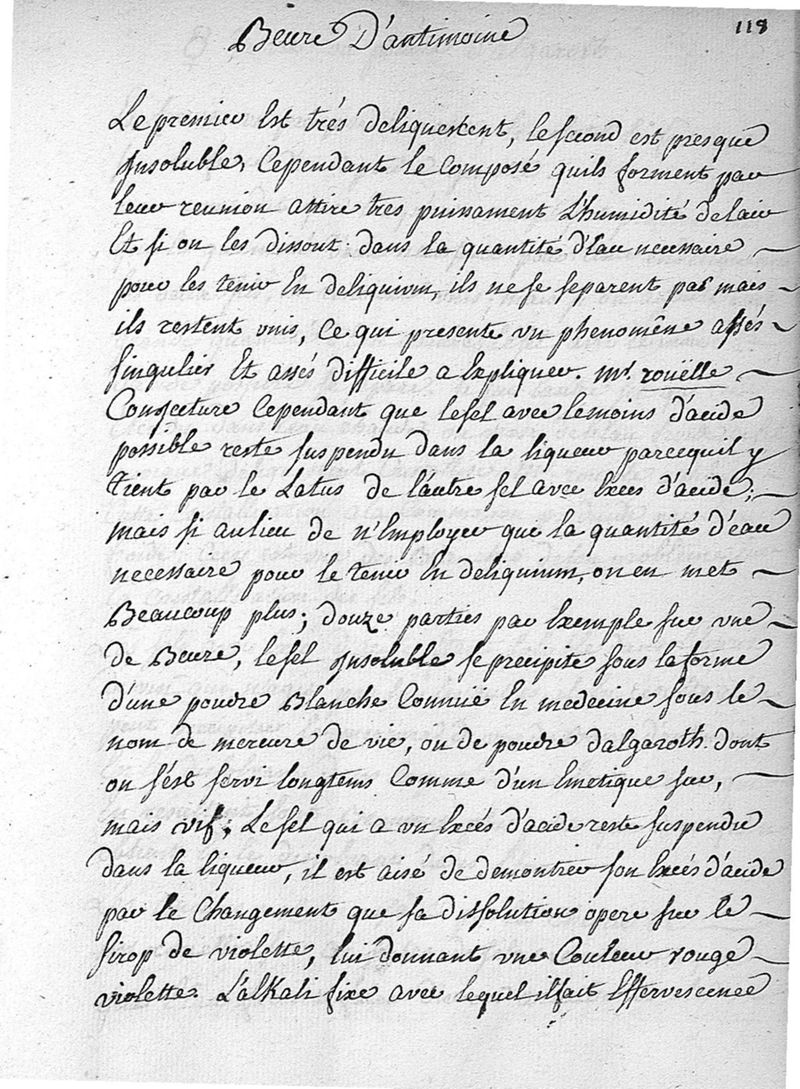 Beure D'antimoine
118
Le premier Est trés deliquescent, le second est presque
Insoluble, Cependant le Composé quils forment par
leur reunion attire tres puissament L'humidité de lair
Et si on les dissout dans la quantité d'Eau necessaire
pour les tenir En deliquium, ils ne se separent pas mais
ils restent unis, Ce qui presente vn phenomêne assés
singulier Et assés difficile a Expliquer. Mr. rouëlle
Conjecture Cependant que le sel avec le moins d'acide
possible reste suspendu dans la liqueur parcequil y
tient par le Latus de l'autre sel avec Exces d'acide;
mais si aulieu de n'Employer que la quantité d'eau
necessaire pour le tenir En deliquium, on en met
Beaucoup plus; douze parties par Exemple sur vne
de Beure, le sel Insoluble se precipite sous la forme
d'une poudre Blanche Connuë En medecine sous le
nom de mercure de vie, ou de poudre dalgaroth. dont
on s'est servi longtems Comme d'un Emetique sur,
mais vif; Le sel qui a vn Excés d'acide reste suspendu
dans la liqueur, il est aisé de demontrer son Excés d'acide
par le Changement que sa dissolution opere sur le
sirop de violette, lui donnant vne Couleur rouge
violette. L'alkali fixe avec lequel il fait Effervescence